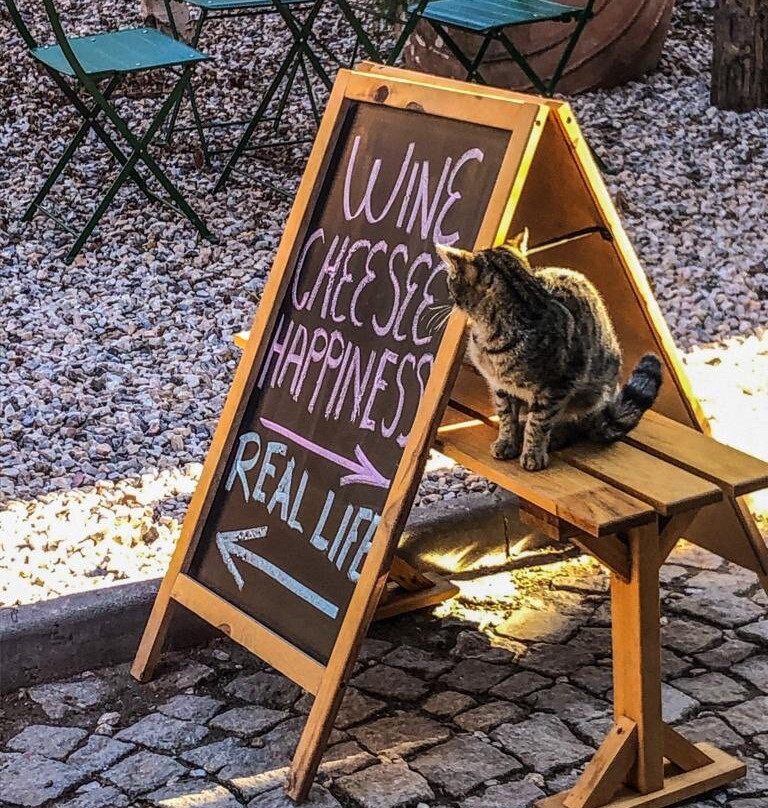 WINE
CHEESEE
HAPPINESS
REAL LIFE